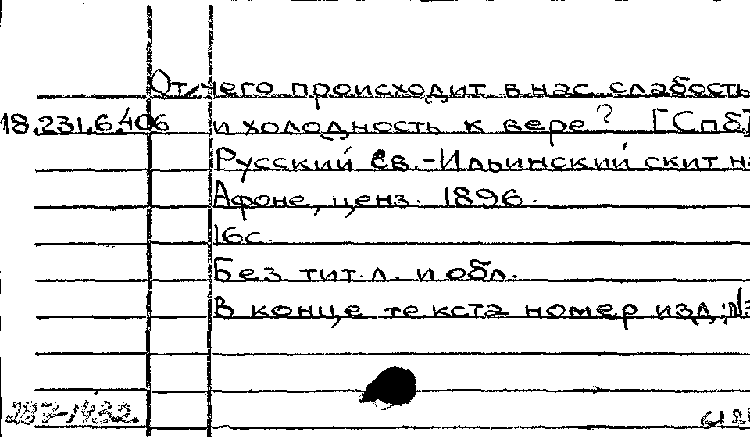 Отчего происходит в нас слабость
18.231.6.406 и холодность к вере? [Спб]
Русский Св.-Ильинский скит на
Афоне, ценз. 1896.
16с.
Без тит.л. и обл.
В конце текста номер изд.:
287-1432.